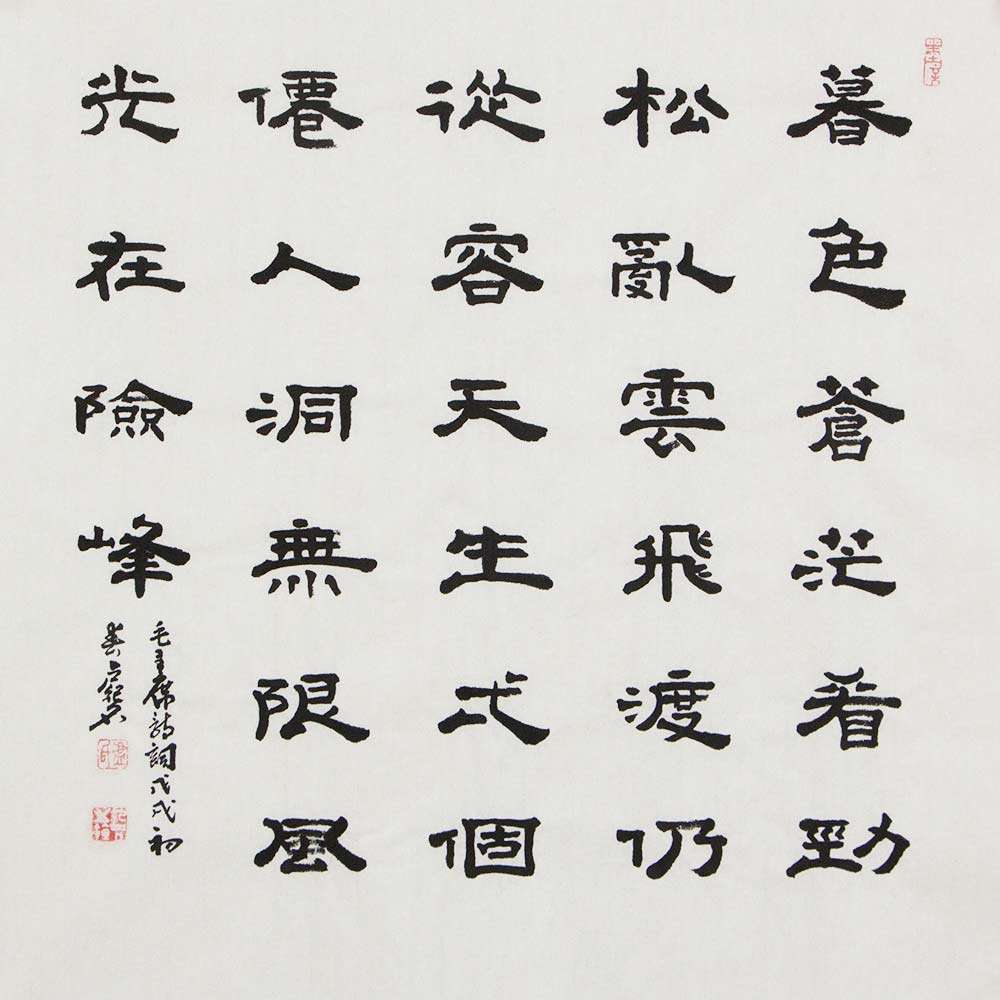 暮色蒼茫看勁
松亂雲飛渡仍
從容天生弌個
僊人洞無限風
光在險峰
毛主席詩詞戊戌初
春